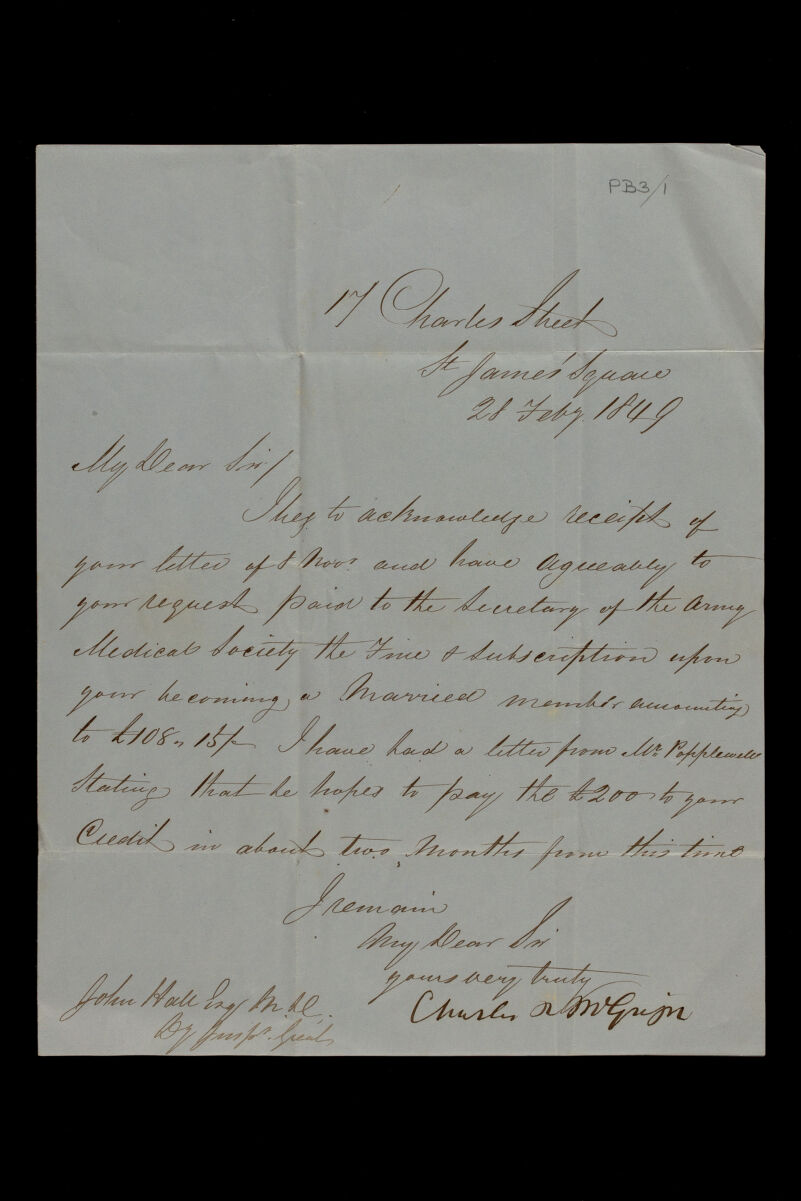 PB3/1
17 Charles Street
St James' Square
28 Feby. 1849
My Dear Sir/
I beg to acknowledge receipt of
your letter of 8 Novr and have agreeably to
your request paid to the Secretary of the Army
Medical Society the Fine & Subscription upon
your becoming a Married member amounting
to £108 " 15/- I have had a letter from Mr. Popplewell
Stating that he hopes to pay the £200 to your
Credit in about two Months from this time
I remain
My Dear Sir
yours very truly
Charles R McGrigor
John Hall Esqr M.D.
Dy Inspr. Genl.